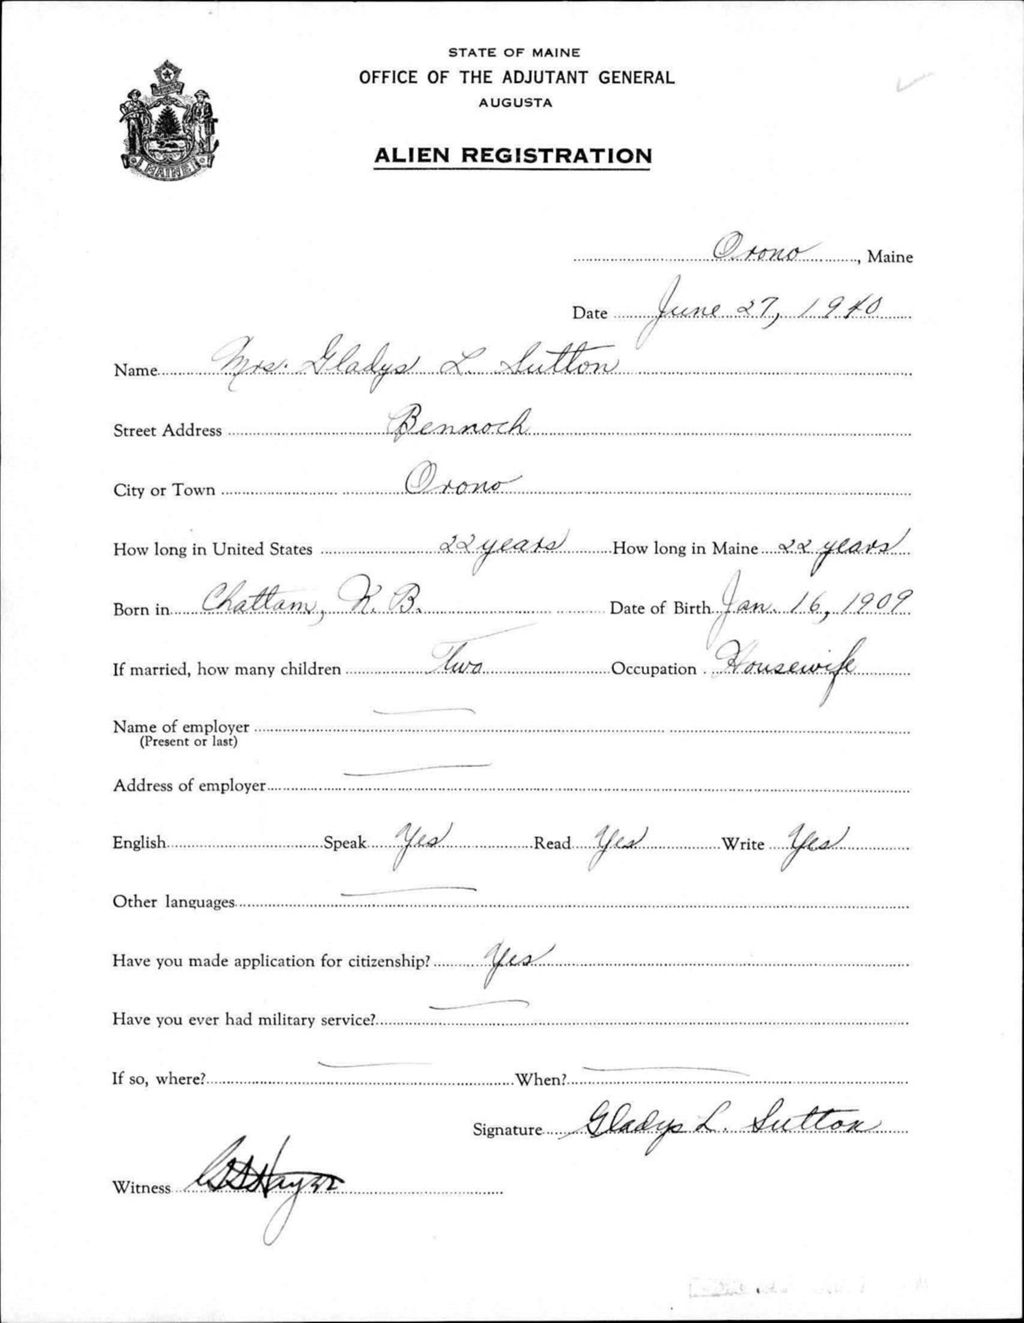 STATE OF MAINE
OFFICE OF THE ADJUTANT GENERAL
AUGUSTA
ALIEN REGISTRATION
MAINE
Orono, Maine
Date June 27, 1940
Name Mrs. Gladys L. Sutton
Street Address Bennoch
City or Town Orono
How long in United States 22 years How long in Maine 22 years
Born in Chattam, N. B. Date of Birth Jan. 16, 1909
If married, how many children Two Occupation Housewife
Name of employer
(Present or last)
Address of employer
English Speak Yes Read Yes Write Yes
Other languages
Have you made application for citizenship? Yes
Have you ever had military service?
If so, where? When?
Signature Gladys L. Sutton
Witness